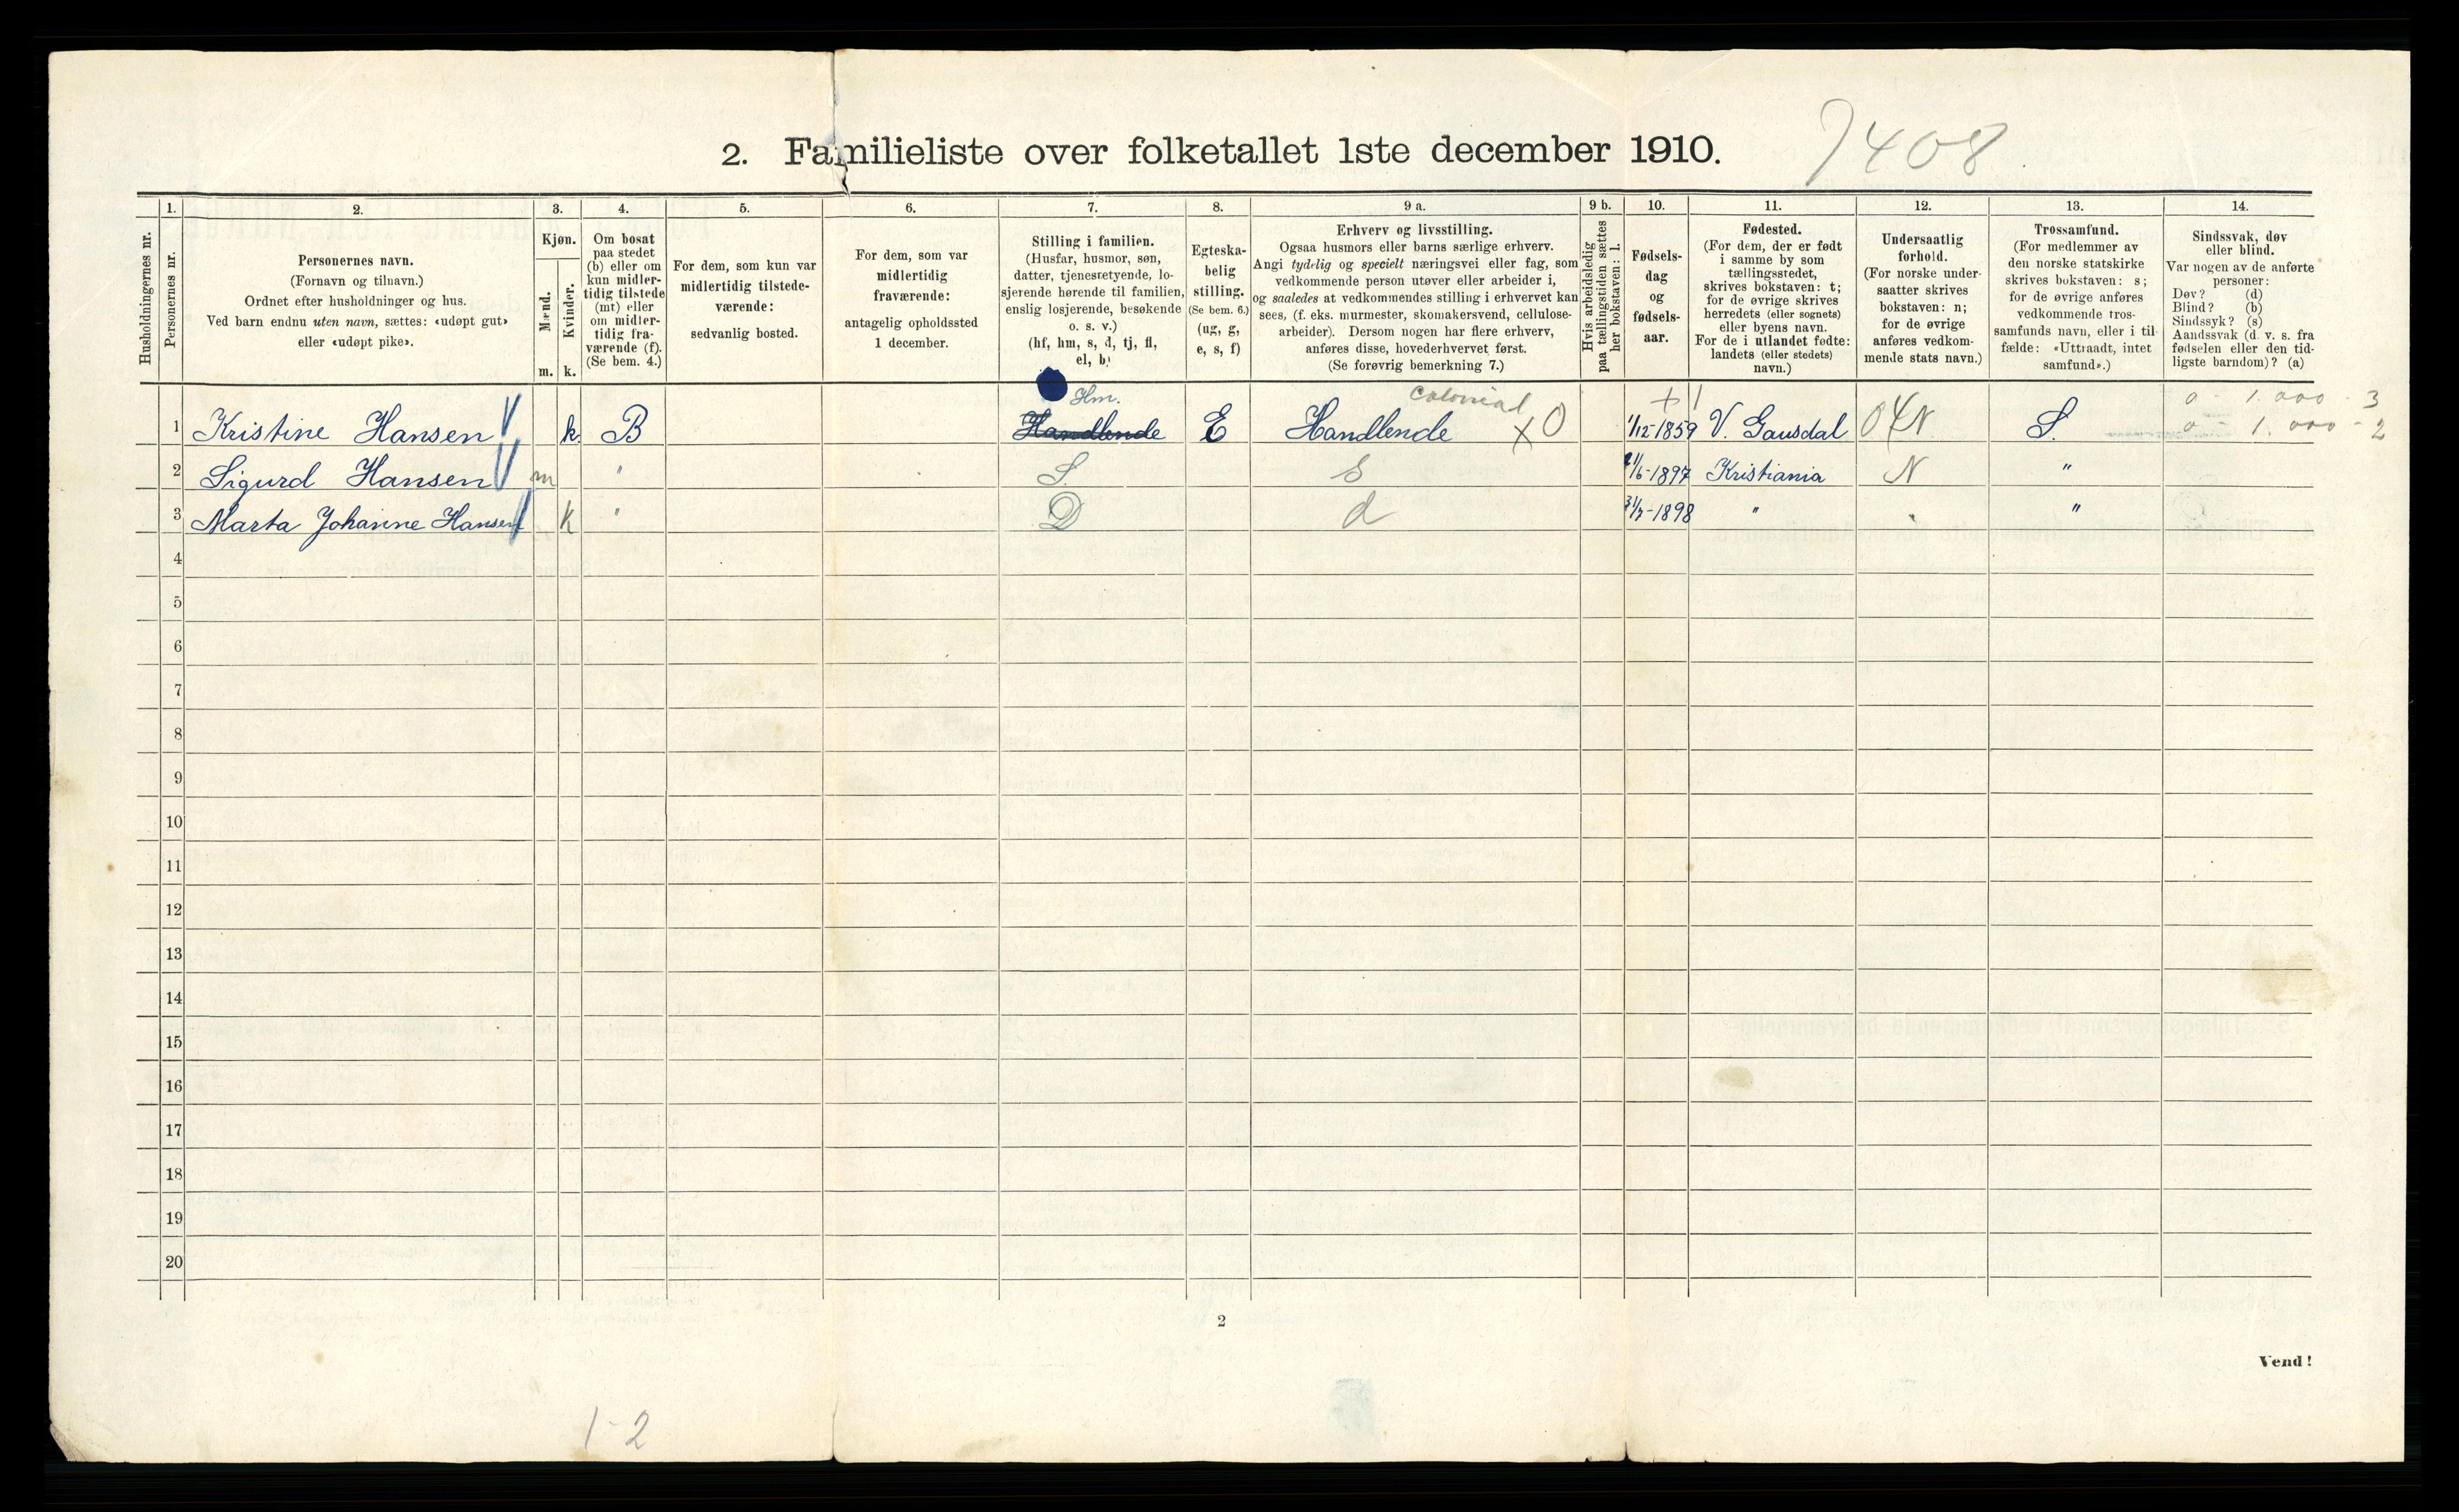 2. Familieliste over folketallet 1ste december 1910.
7408
Husholdningernes nr.
1.
Personernes nr.
2.
Personernes navn.
(Fornavn og tilnavn.)
Ordnet efter husholdninger og hus.
Ved barn endnu uten navn, sættes: «udøpt gut»
eller «udøpt pike».
3.
Kjøn.
Mænd.
m.
Kvinder.
k.
4.
Om bosat
paa stedet
(b) eller om
kun midler-
tidig tilstede
(mt) eller
om midler-
tidig fra-
værende (f).
(Se bem. 4.)
5.
For dem, som kun var
midlertidig tilstede-
værende:
sedvanlig bosted.
6.
For dem, som var
midlertidig
fraværende:
antagelig opholdssted
1 december.
7.
Stilling i familien.
(Husfar, husmor, søn,
datter, tjenestetyende, lo-
sjerende hørende til familien,
enslig losjerende, besøkende
o. s. v.)
(hf, hm, s, d, tj, fl,
el, b)
8.
Egteska-
belig
stilling.
(Se bem. 6.)
(ug, g,
e, s, f)
9 a.
Erhverv og livsstilling.
Ogsaa husmors eller barns særlige erhverv.
Angi tydelig og specielt næringsvei eller fag, som
vedkommende person utøver eller arbeider i,
og saaledes at vedkommendes stilling i erhvervet kan
sees, (f. eks. murmester, skomakersvend, cellulose-
arbeider). Dersom nogen har flere erhverv,
anføres disse, hovederhvervet først.
(Se forøvrig bemerkning 7.)
9 b.
Hvis arbeidsledig
paa tællingstiden sættes
her bokstaven: l.
10.
Fødsels-
dag
og
fødsels-
aar.
11.
Fødested.
(For dem, der er født
i samme by som
tællingsstedet,
skrives bokstaven: t;
for de øvrige skrives
herredets (eller sognets)
eller byens navn.
For de i utlandet fødte:
landets (eller stedets)
navn.)
12.
Undersaatlig
forhold.
(For norske under-
saatter skrives
bokstaven: n;
for de øvrige
anføres vedkom-
mende stats navn.)
13.
Trossamfund.
(For medlemmer av
den norske statskirke
skrives bokstaven: s;
for de øvrige anføres
vedkommende tros-
samfunds navn, eller i til-
fælde: «Uttraadt, intet
samfund».)
14.
Sindssvak, døv
eller blind.
Var nogen av de anførte
personer:
Døv? (d)
Blind? (b)
Sindssyk? (s)
Aandssvak (d. v. s. fra
fødselen eller den tid-
ligste barndom)? (a)
Hm. Colonial + 1 0 - 1.000 - 3
1 Kristine Hansen k B Handlende E Handlende X O 1/12-1859 V. Gausdal N S. 0 - 1.000 - 2
2 Sigurd Hansen m " S. s 1/6-1897 Kristiania N "
3 Marta Johanne Hansen k " D d 31/7-1898 " "
4
5
6
7
8
9
10
11
12
13
14
15
16
17
18
19
20
2
Vend!
1-2